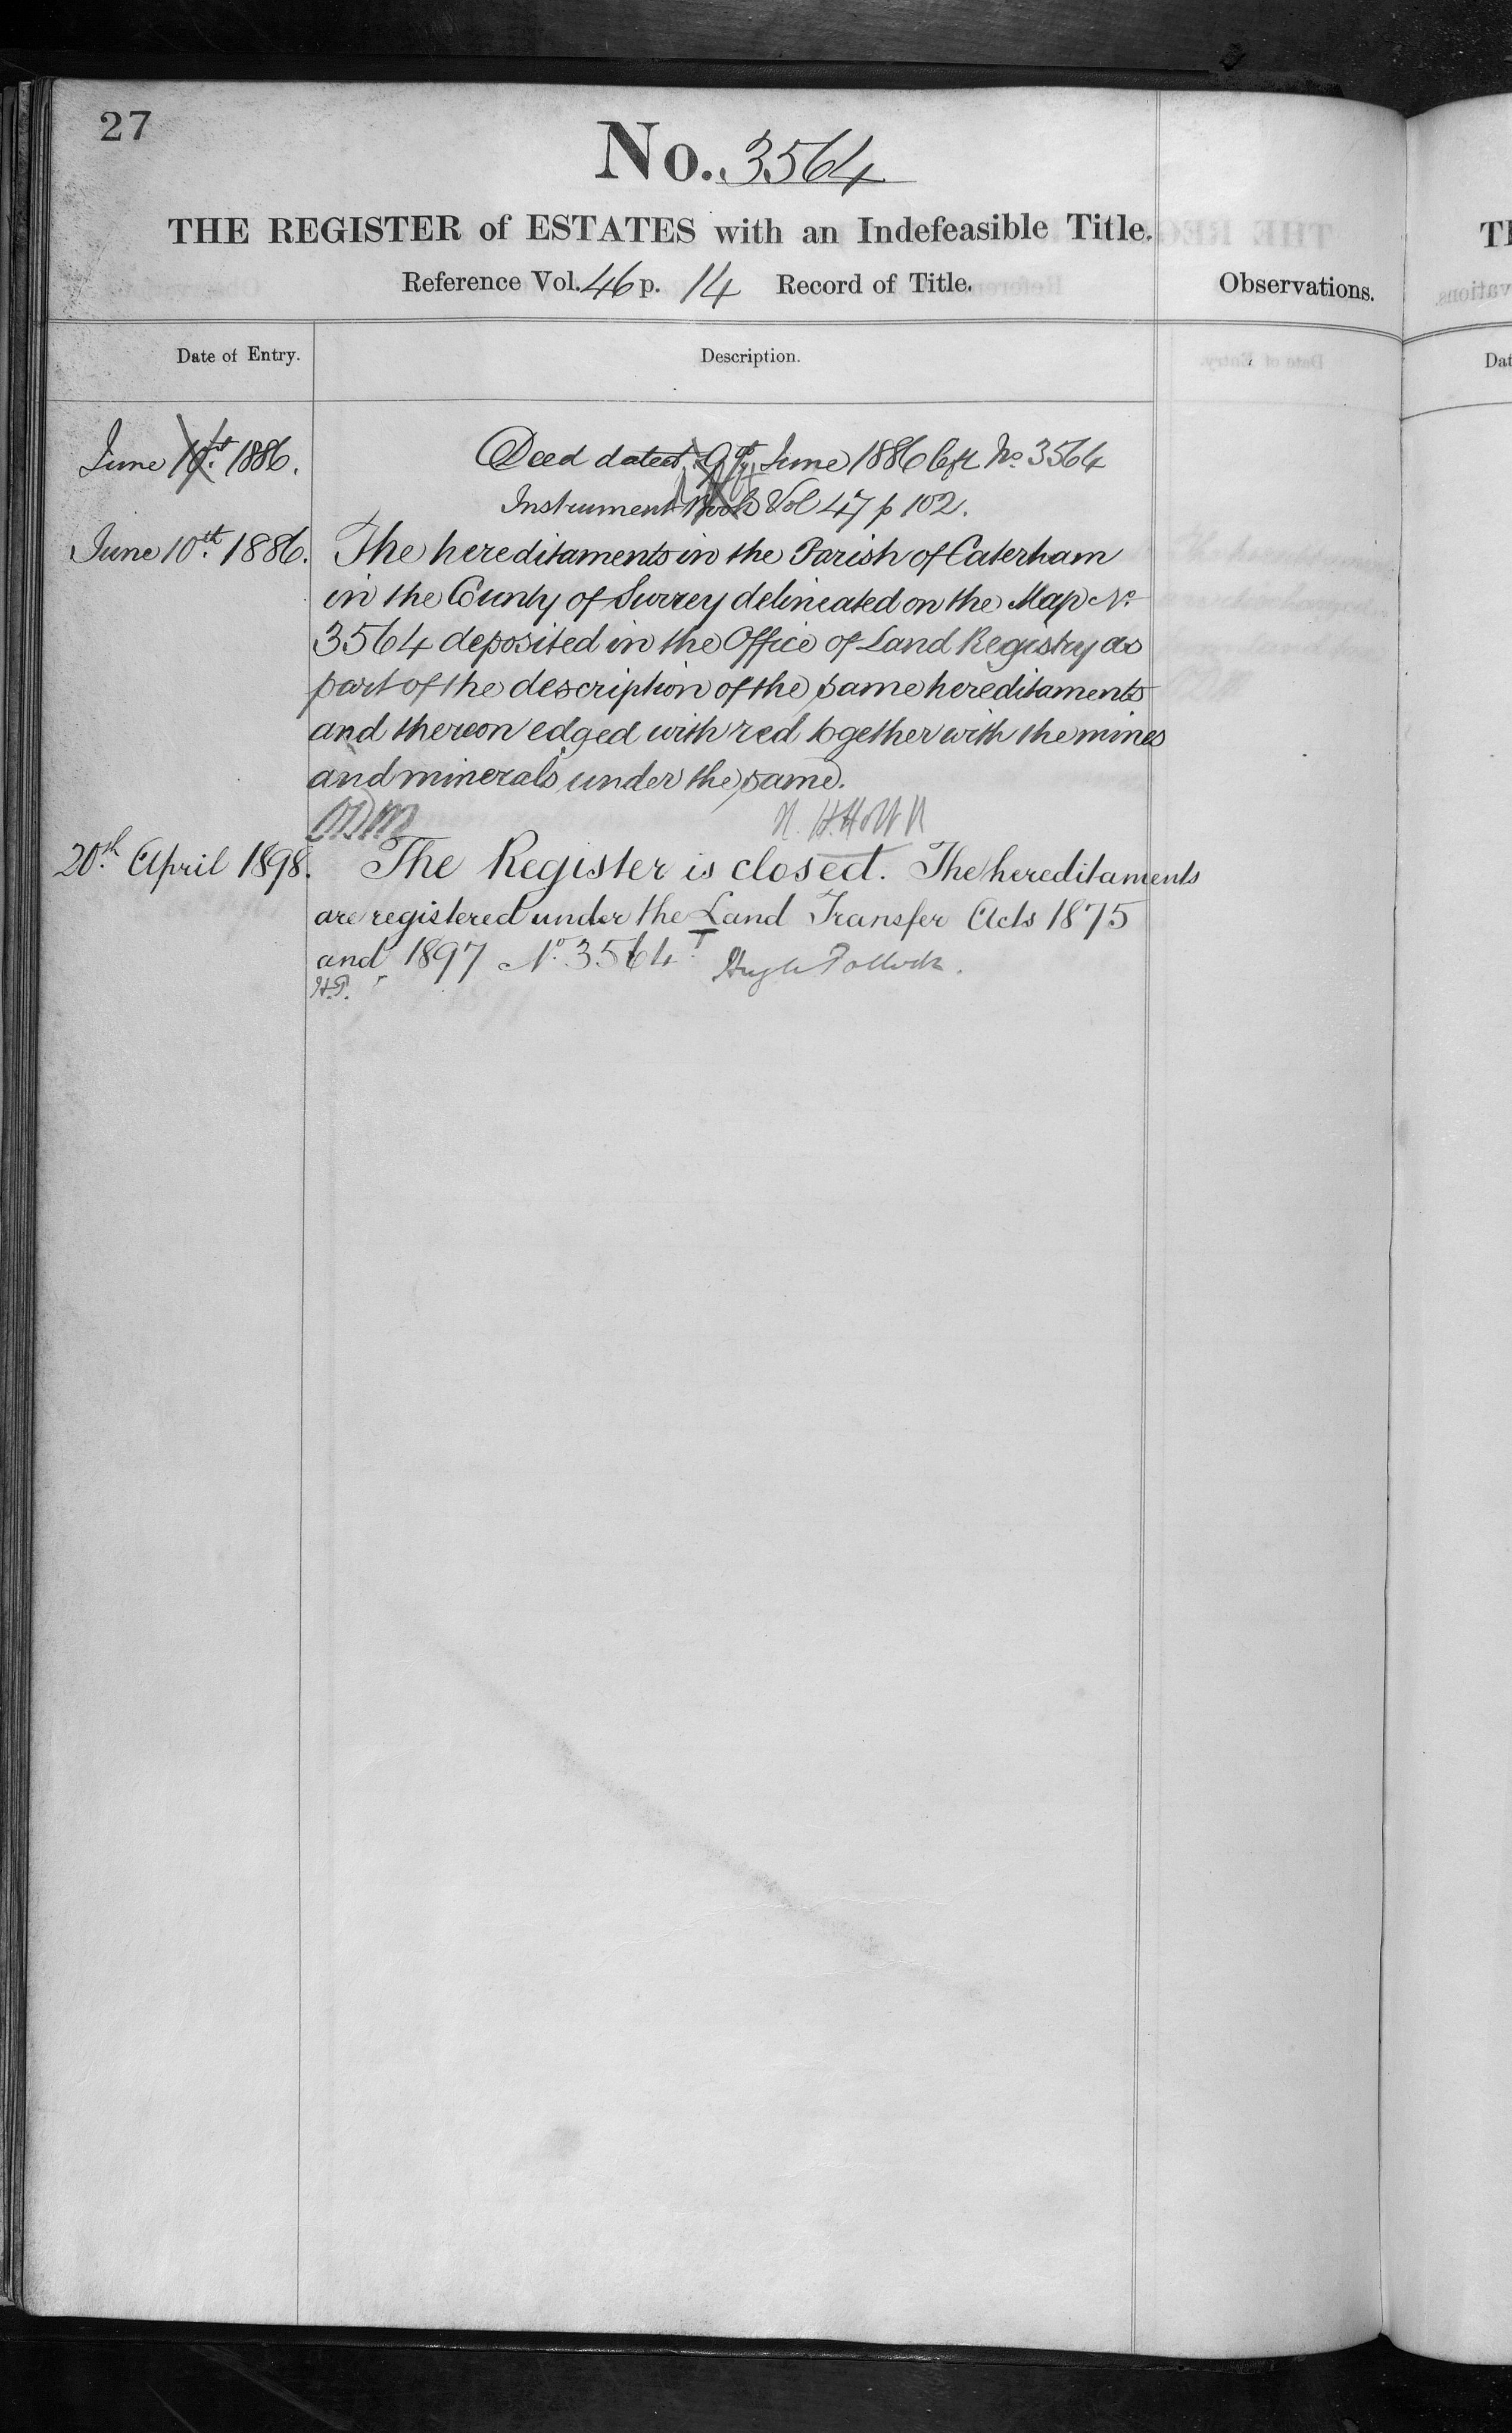 27
No. 3564
THE REGISTER of ESTATES with an Indefeasible Title.
Reference Vol. 46 p. 14 Record of Title.
Observations.
Date of Entry.
Description.
June 1886.
Deed dated 9th June 1886 left No 3564
Instrument Book Vol 47 p 102.
June 10th 1886.
The hereditaments in the Parish of Caterham
in the County of Surrey delineated on the Map No
3564 deposited in the Office of Land Registry as
part of the description of the same hereditaments
and thereon edged with red together with the mines
and minerals under the same.
20th April 1898.
The Register is closed. The hereditaments
are registered under the Land Transfer Acts 1875
and 1897 No 3564 Hugh Pollock.
H.P.